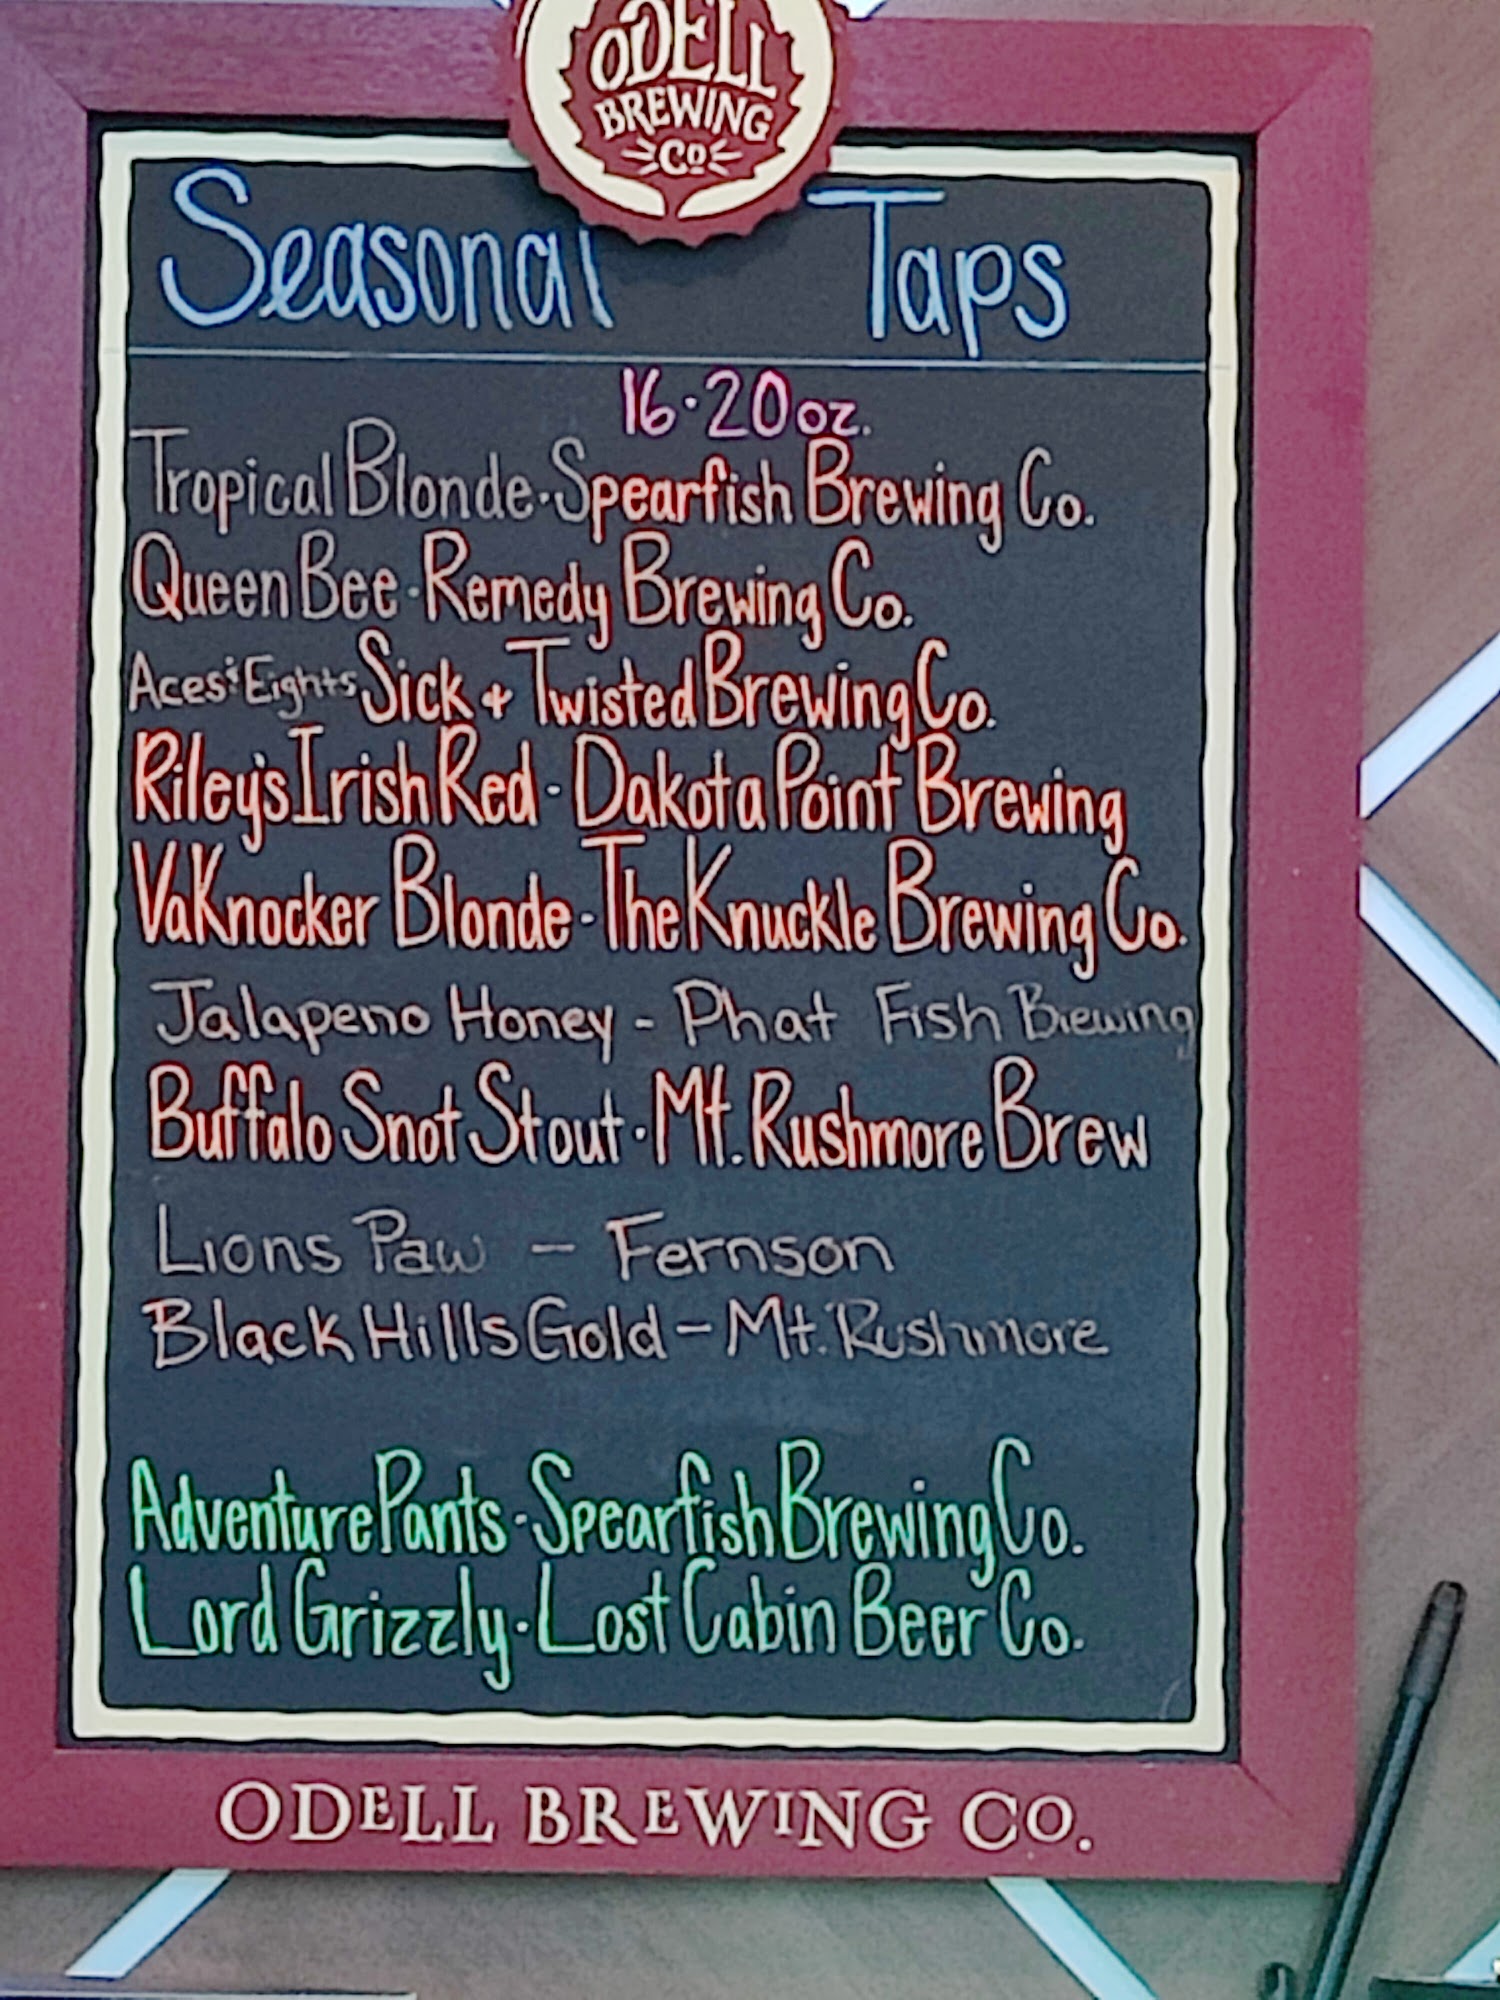 ODELL
BREWING
CO
Seasonal Taps
16·20oz.
Tropical Blonde·Spearfish Brewing Co.
Queen Bee·Remedy Brewing Co.
Aces & Eights Sick + Twisted Brewing Co.
Riley's Irish Red - Dakota Point Brewing
VaKnocker Blonde - The Knuckle Brewing Co.
Jalapeno Honey - Phat Fish Brewing
Buffalo Snot Stout · Mt. Rushmore Brew
Lions Paw - Fernson
Black Hills Gold - Mt. Rushmore
Adventure Pants · Spearfish Brewing Co.
Lord Grizzly · Lost Cabin Beer Co.
ODELL BREWING CO.